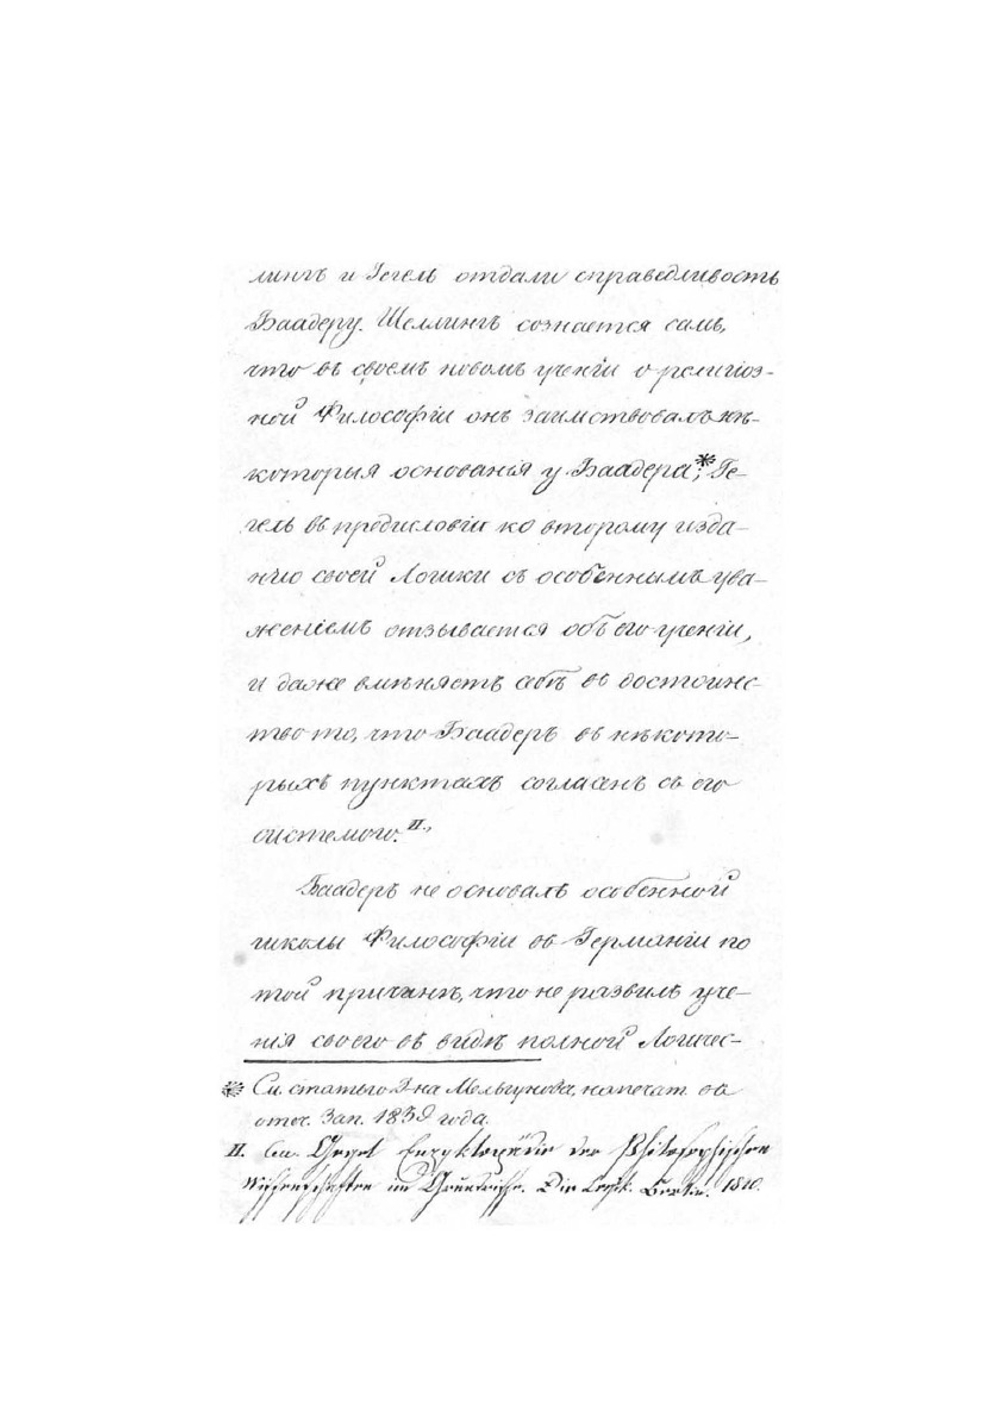 лингъ и Гегель отдали справедливость
Баадеру. Шеллингъ сознается самъ,
что въ своемъ новомъ ученіи о религіоз-
ной Философіи онъ заимствовалъ нѣ-
которыя основанія у Баадера*; Ге-
гель въ предисловіи ко второму изда-
нію своей Логики съ особеннымъ ува-
женіемъ отзывается объ его ученіи,
и даже вмѣняетъ себѣ въ достоинс-
тво то, что Баадеръ въ нѣкото-
рыхъ пунктахъ согласенъ съ его
системою. II.,
Баадеръ не основалъ особенной
школы Философіи въ Германіи по
той причинѣ, что не развилъ уче-
нія своего въ видѣ полной Логичес-
* См. статью Г-на Мельгунова, напечат. въ
отеч. Зап. 1839 года.
II. См. Hegel Enzyklopädie der Philosophischen
Wissenschaften im Grundrisse. Die Logik. Berlin. 1840.